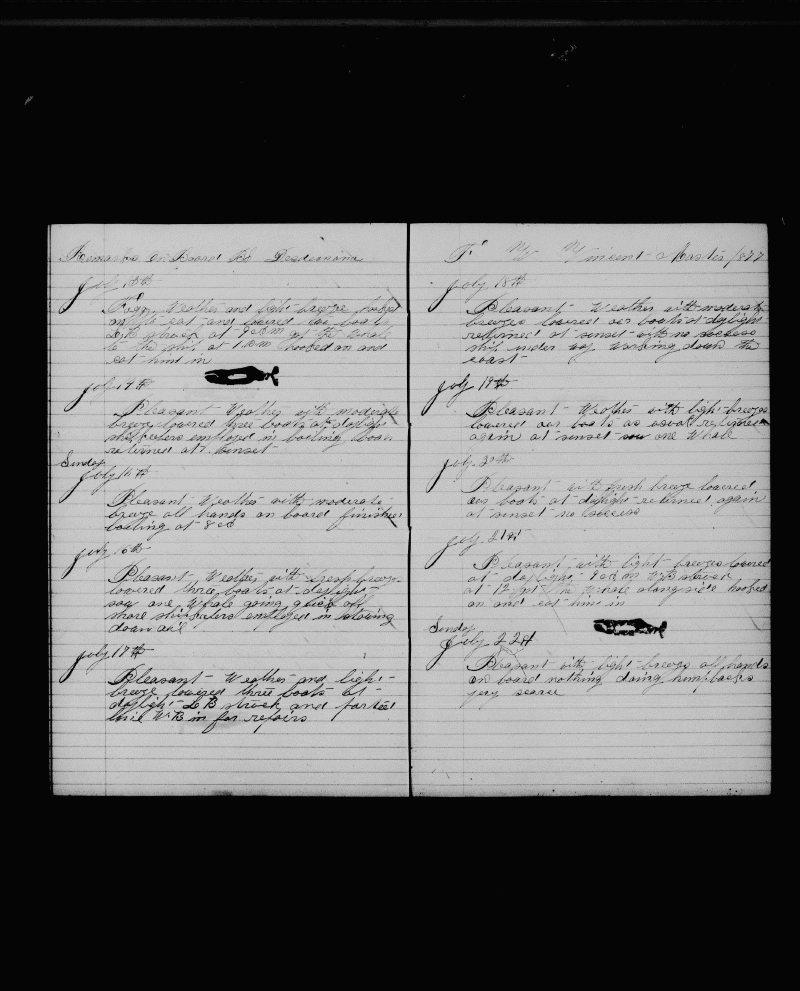 Remarks on Board Bk Desdemona
july 13th
Foggy Weather and light breeze looked
in to eat and lowered four boats
LB struck at 9 am got the Whale
to the ship at 1 pm hooked on and
cut him in
july 14th
Pleasant Weather with moderate
breeze lowered three boats at daylight
shipkeepers employed in boiling boats
returned at sunset
Sunday
july 15th
Pleasant Weather with moderate
breeze all hands on board finished
boiling at 8
july 16th
Pleasant Weather with fresh breeze
lowered three boats at daylight
saw one Whale going quick off
shore shipkeepers employed in stowing
down oil
july 17th
Pleasant Weather and light
breeze lowered three boats at
daylight LB struck and parted
line WB in for repairs
F W Vincent Master 1877
july 18th
Pleasant Weather with moderate
breezes lowered our boats at daylight
returned at sunset with no soccess
ship under way working down the
coast
july 19th
Pleasant Weather with light breezes
lowered our boats as usual returned
again at sunset saw one Whale
july 20th
Pleasant with fresh breeze lowered
our boats at daylight returned again
at sunset no soccess
july 21st
Pleasant with light breezes lowered
at daylight 9 am WB struck
at 12 got the Whale alongside hooked
on and cut him in
Sunday
july 22d
Pleasant with light breezes all hands
on board nothing doing humpbacks
very scarce